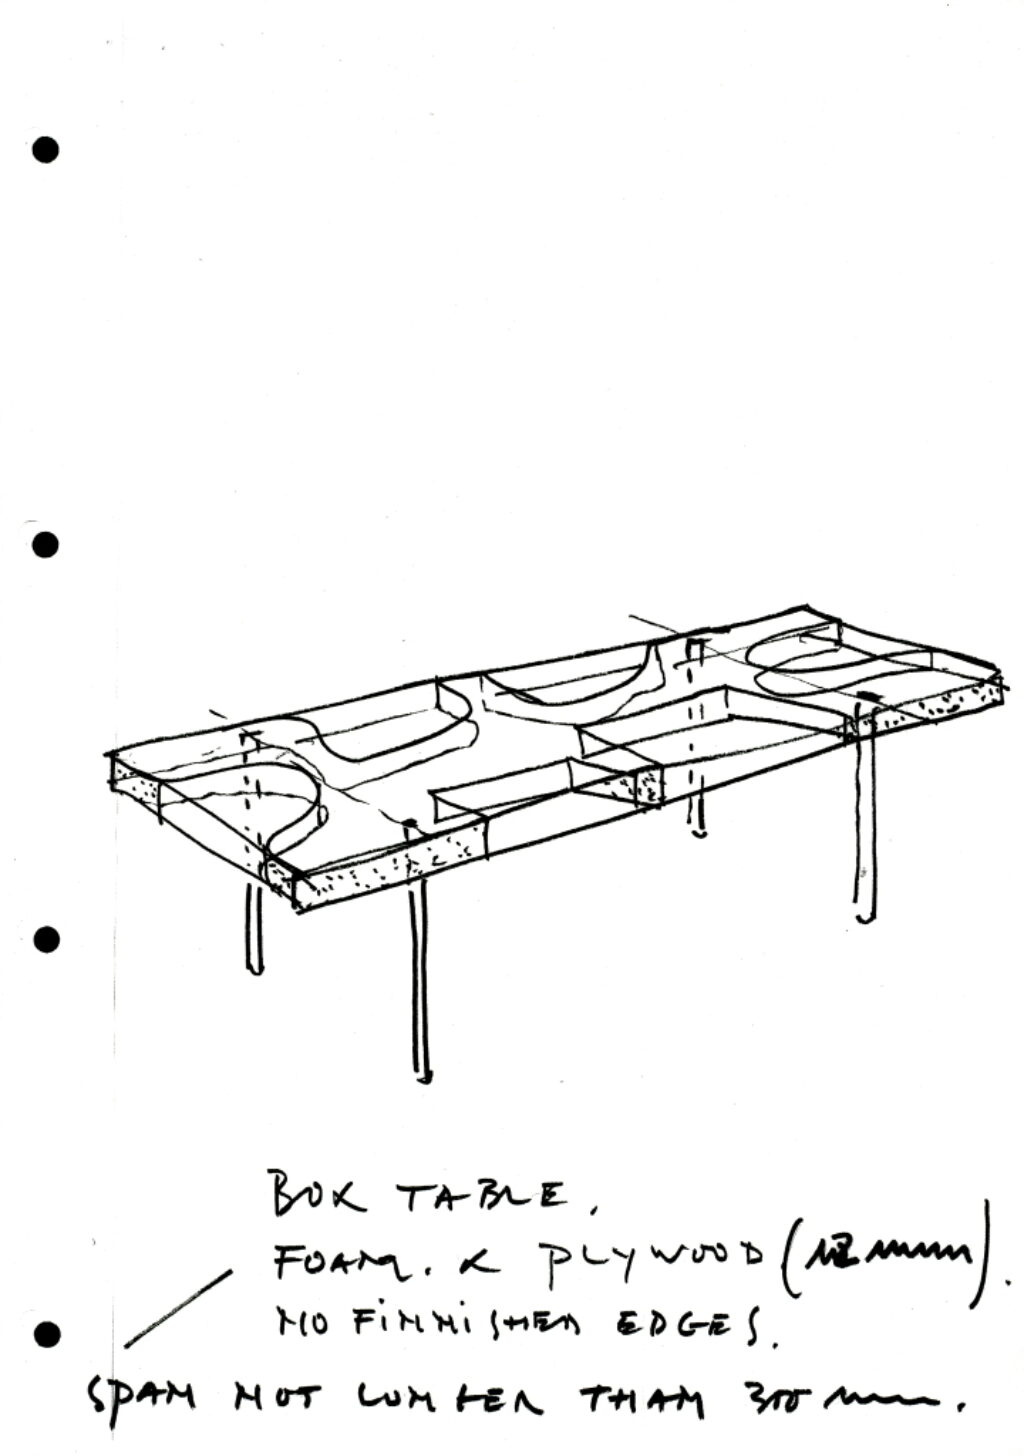 BOX TABLE.
FOAM. & PLYWOOD ( ).
NO FINNISHED EDGES.
SPAN NOT LONGER THAN 300 mm.